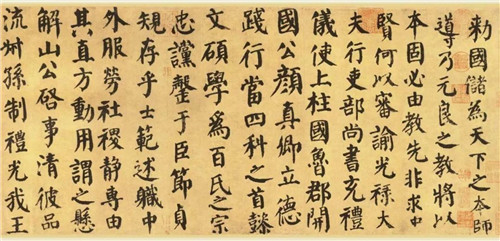 勑國儲為天下之本師
導乃元良之教將以
本固必由教先非求中
賢何以審諭光祿大
夫行吏部尚書充禮
儀使上柱國魯郡開
國公顏真卿立德
踐行當四科之首懿
文碩學為百氏之宗
忠讜罄于臣節貞
規存乎士範述職中
外服勞社稷靜專由
其直方動用謂之懸
解山公啓事清彼品
流叔孫制禮光我王